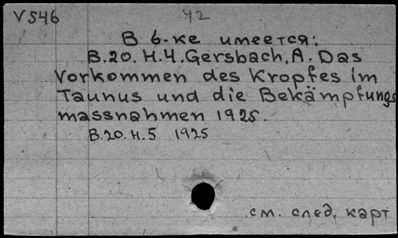 V546 42
В б-ке имеется:
B.20. H.4. Gersbach, A. Das
Vorkommen des Kropfes im
Taunus und die Bekämpfungs
massnahmen 1925.
B.20. H.5 1925
см. след. карт